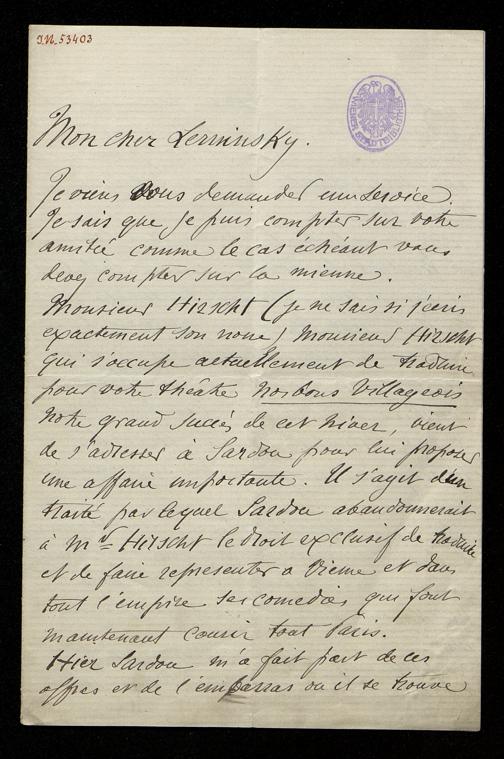 I.N. 53403
Mon cher Lerminsky.
Je viens vous demander un service.
Je sais que je puis compter sur votre
amitié comme le cas échéant vous
devez compter sur la mienne.
Monsieur Hirscht (je ne sais si j'écris
exactement son nom) Monsieur Hirscht
qui s'occupe actuellement de traduire
pour votre théâtre nos bons Villageois
notre grand succès de cet hiver, vient
de s'adresser à Sardou pour lui proposer
une affaire importante. Il s'agit d'un
traité par lequel Sardou abandonnerait
à Mr Hirscht le droit exclusif de traduire
et de faire representer a Vienne et dans
tout l'empire ses comedies qui font
maintenant courir tout Paris.
Hier Sardou m'a fait part de ces
offres et de l'embarras ou il se trouve